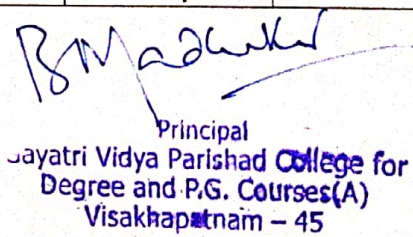 Principal
ayatri Vidya Parishad College for
Degree and P.G. Courses(A)
Visakhapatnam – 45